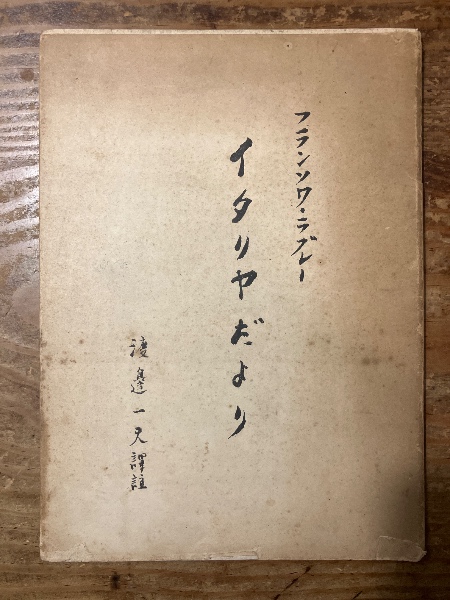 フランソワ・ラブレー
イタリヤだより
渡邊一夫譯註